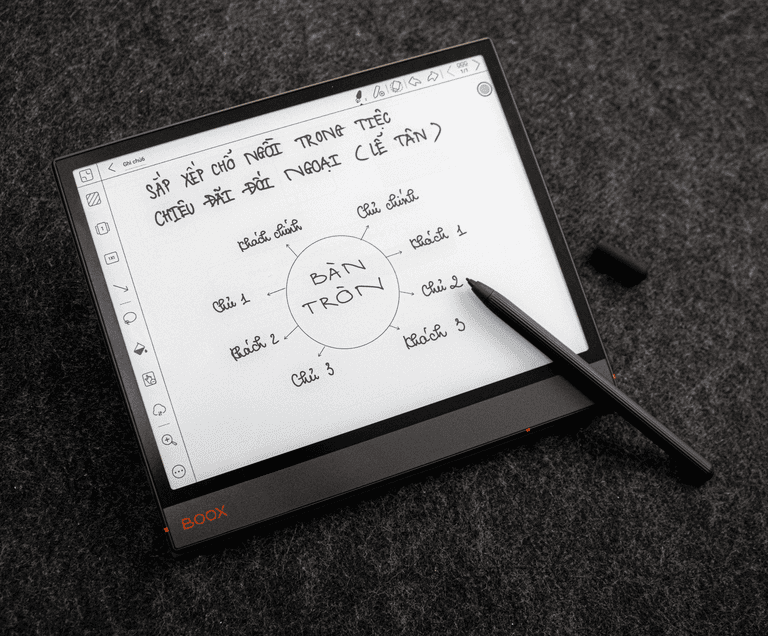 Ghi chú
SẮP XẾP CHỖ NGỒI TRONG TIỆC
CHIÊU ĐÃI ĐỐI NGOẠI (LỄ TÂN)
Khách chính
Chủ chính
Khách 1
Chủ 1
BÀN
TRÒN
Chủ 2
Khách 2
Khách 3
Chủ 3
BOOX